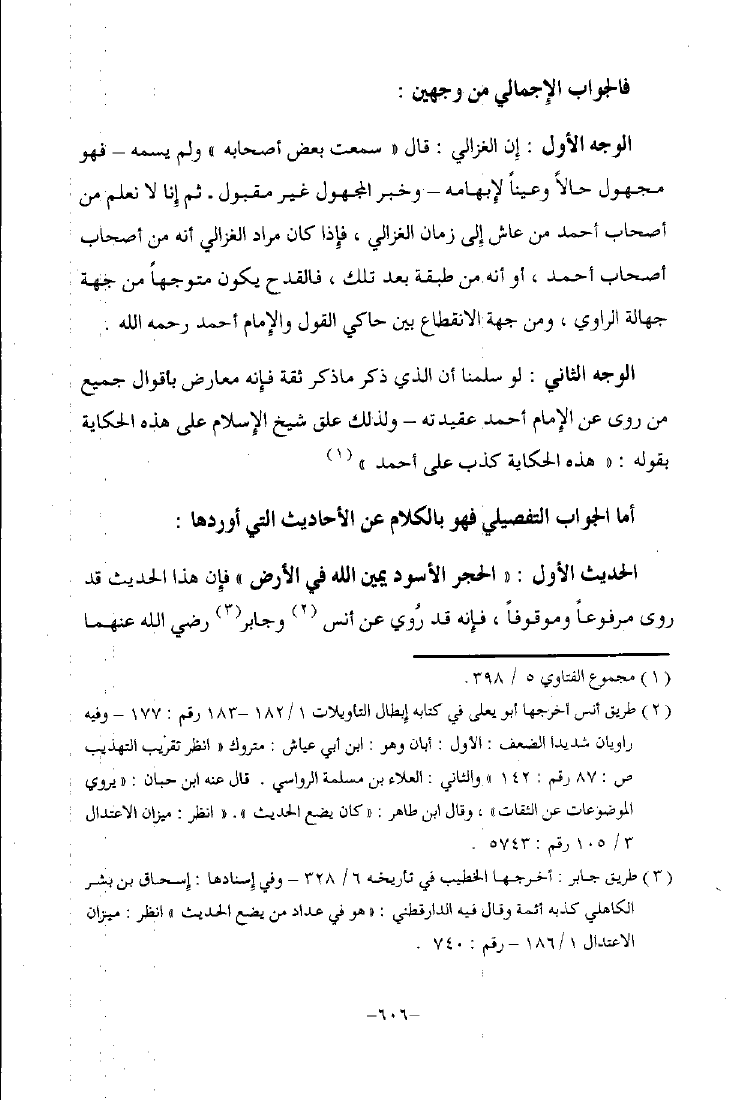 فالجواب الإجمالي من وجهين :
الوجه الأول : إن الغزالي : قال « سمعت بعض أصحابه » ولم يسمه – فهو
مجهول حالاً وعيناً لإبهامه – وخبر المجهول غير مقبول . ثم إنا لا نعلم من
أصحاب أحمد من عاش إلى زمان الغزالي ، فإذا كان مراد الغزالي أنه من أصحاب
أصحاب أحمد ، أو أنه من طبقة بعد تلك ، فالقدح يكون متوجهاً من جهة
جهالة الراوي ، ومن جهة الانقطاع بين حاكي القول والإمام أحمد رحمه الله .
الوجه الثاني : لو سلمنا أن الذي ذكر ماذكر ثقة فإنه معارض بأقوال جميع
من روى عن الإمام أحمد عقيدته – ولذلك علق شيخ الإسلام على هذه الحكاية
بقوله : « هذه الحكاية كذب على أحمد » (١)
أما الجواب التفصيلي فهو بالكلام عن الأحاديث التي أوردها :
الحديث الأول : « الحجر الأسود يمين الله في الأرض » فإن هذا الحديث قد
روى مرفوعاً وموقوفاً ، فإنه قد رُوي عن أنس (٢) وجابر(٣) رضي الله عنهما
(١) مجموع الفتاوي ٥ / ٣٩٨ .
(٢) طريق أنس أخرجها أبو يعلى في كتابه إبطال التأويلات ١ /١٨٢ –١٨٣ رقم : ١٧٧ – وفيه
راويان شديدا الضعف : الأول : أبان وهو : ابن أبي عياش : متروك « انظر تقريب التهذيب
ص : ٨٧ رقم : ١٤٢ » والثاني : العلاء بن مسلمة الرواسي . قال عنه ابن حبان : « يروي
الموضوعات عن الثقات» ، وقال ابن طاهر : « كان يضع الحديث » . « انظر : ميزان الاعتدال
٣ / ١٠٥ رقم : ٥٧٤٣ .
(٣) طريق جابر : أخرجها الخطيب في تأريخه ٦ / ٣٢٨ – وفي إسنادها : إسحاق بن بشر
الكاهلي كذبه أئمة وقال فيه الدارقطني : « هو في عداد من يضع الحديث » انظر : ميزان
الاعتدال ١ /١٨٦ – رقم : ٧٤٠ .
–٦٠٦–